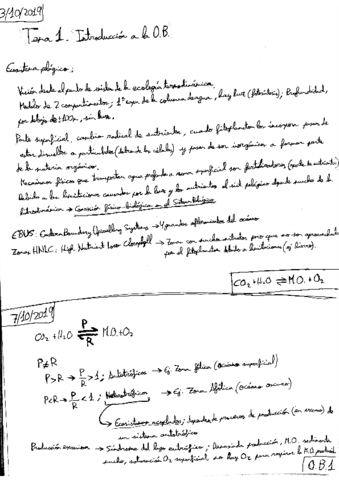 3/10/2019
Tema 1. Introducción a la O.B.
Ecosistema pelágico:
Visión desde el punto de vista de la ecología termodinámica.
Modelo de 2 compartimentos; 1ª capa de la columna de agua, hay luz (fótica); Profundidad,
por debajo de sin luz.
Parte superficial, cambio radical de nutrientes, cuando fitoplancton los incorpora pasan de
estar disueltos a particulados (dentro de la célula) y pasan de ser inorgánicos a formar parte
de la materia orgánica.
Mecanismos físicos que transportan agua profunda a zona superficial son fertilizadores
Debido a las limitaciones causadas por la luz y los nutrientes el sist. pelágico depende mucho de la
hidrodinámica → Conexión físico-biológica en el Sistema Pelágico
EBUS: Eastern Boundary Upwelling Systems → 4 grandes afloramientos del océano
Zonas HNLC: High Nutrient Low Chlorophyll → Zona con muchos nutrientes pero que no son aprovechados
por el fitoplancton debido a limitaciones (ej: hierro).
CO₂ + H₂O ⇌ M.O. + O₂
7/10/2019
CO₂ + H₂O ⇌ M.O. + O₂
P
R
P≠R
P>R → P/R > 1; Autotróficos → Ej. Zona fótica (océano superficial)
P<R → P/R < 1; Heterotróficos → Ej. Zona Afótica (océano oscuro)
→ Ecosistemas acoplados: depende de procesos de producción (en exceso) de
un sistema autotrófico
Producción excesiva → Síndrome del lago eutrófico; Demasiada producción, M.O. sedimenta
mucho, saturación O₂ superficial, no hay O₂ para respirar la M.O.
O.B.1